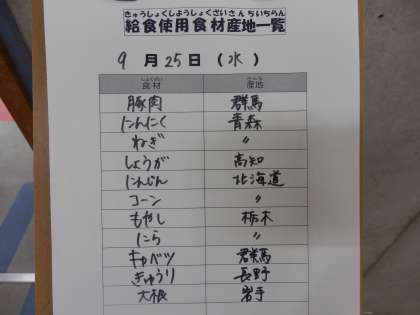 きゅうしょくしようしょくざいさんちいちらん
給食使用食材産地一覧
9月25日(水)
しょくざい さんち
食材 産地
豚肉 群馬
にんにく 青森
ねぎ 〃
しょうが 高知
にんじん 北海道
コーン 〃
もやし 栃木
にら 〃
キャベツ 群馬
きゅうり 長野
大根 岩手